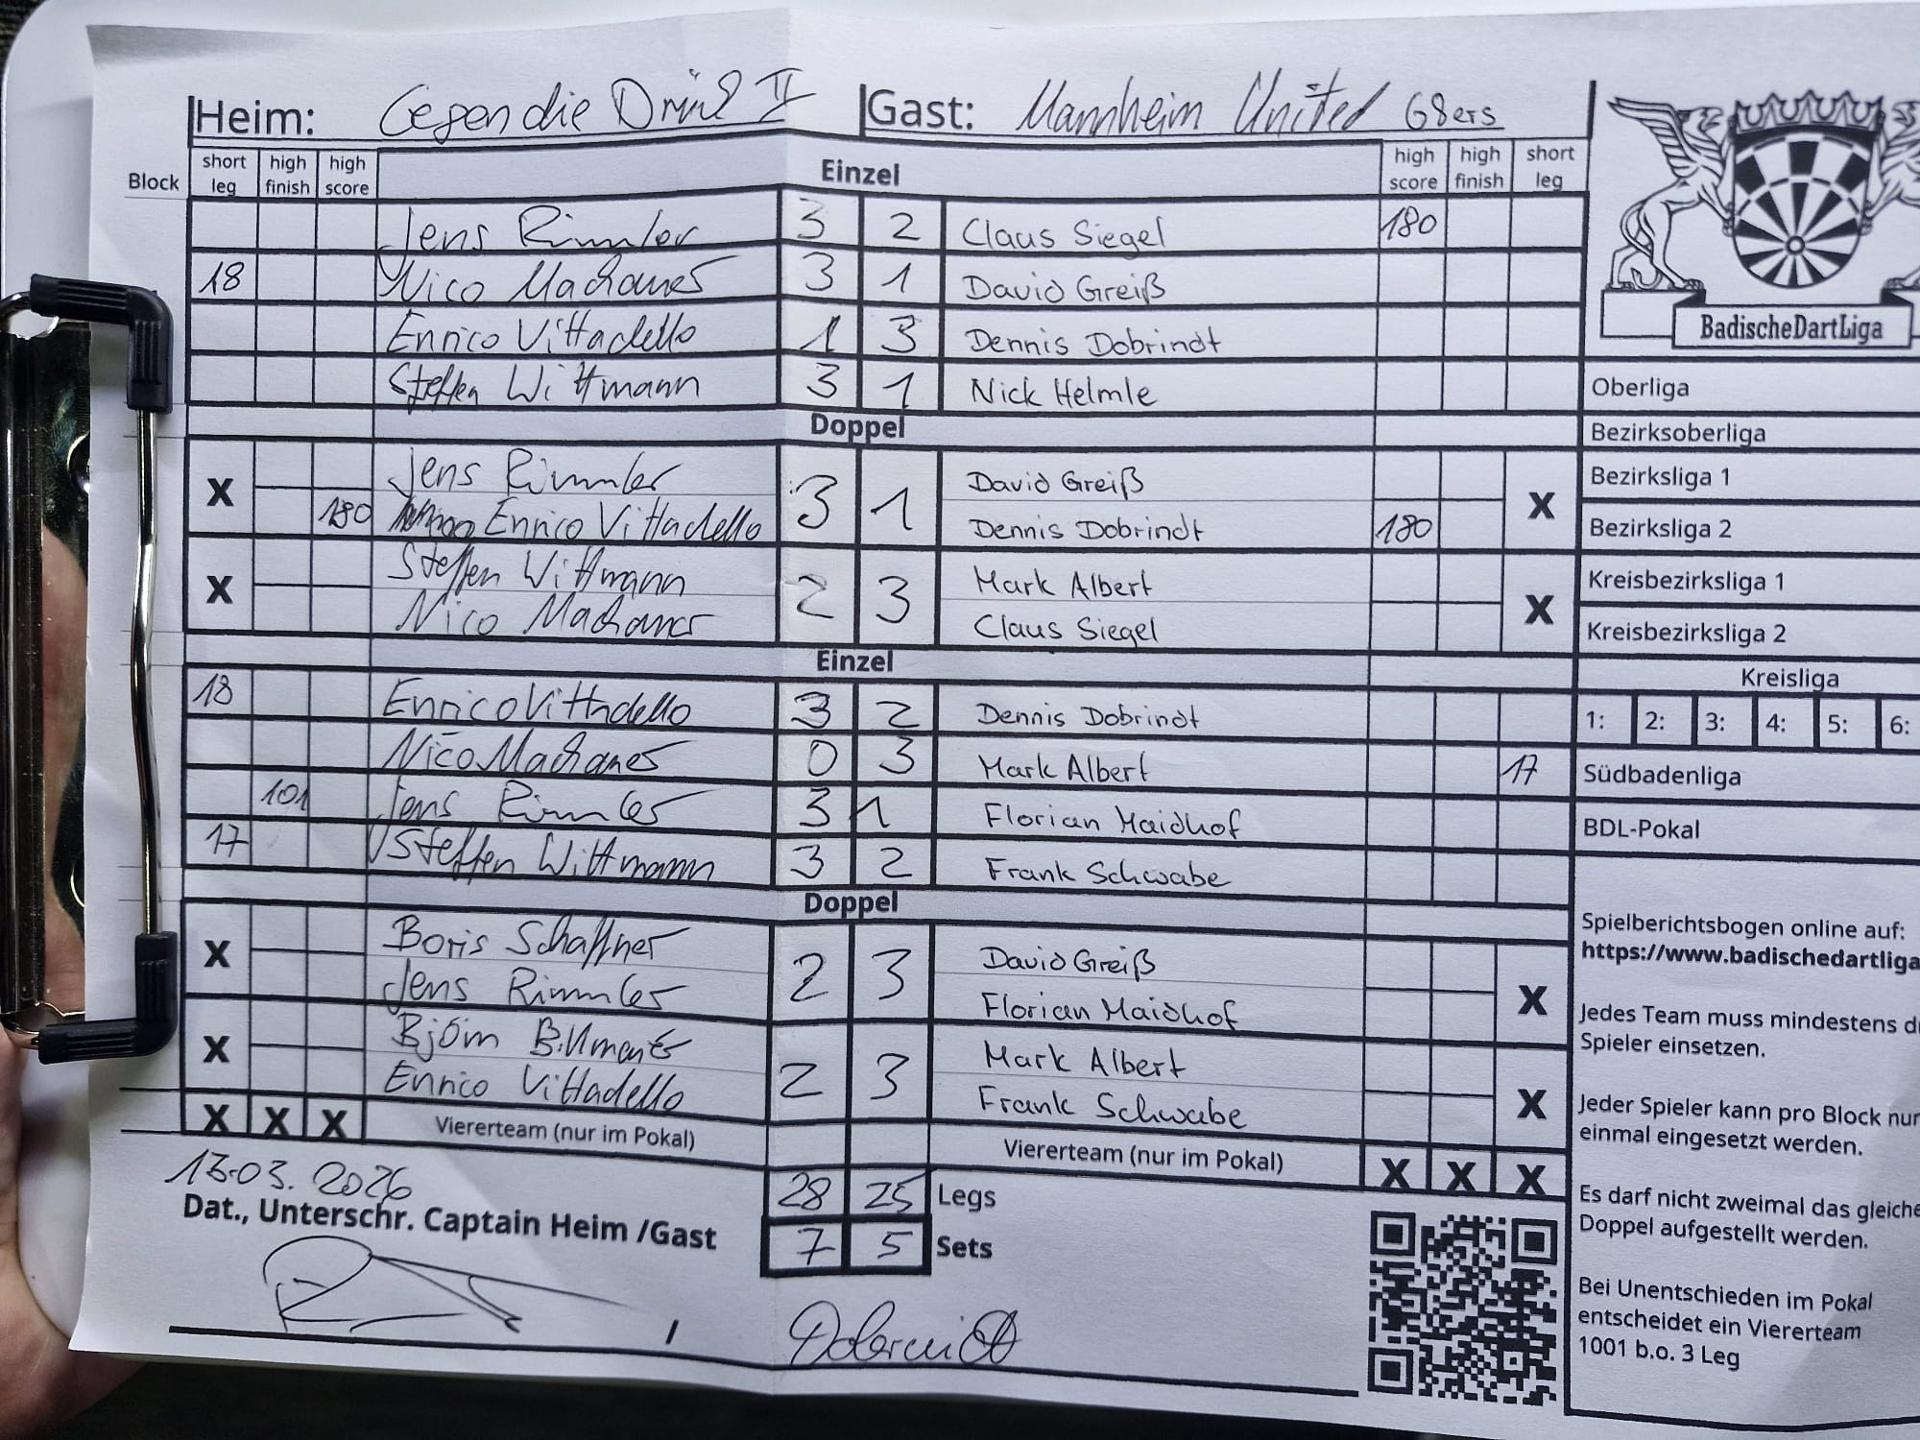 Heim: Gegen die Drül II Gast: Mannheim United 68ers
Block short leg high finish high score Einzel high score high finish short leg
Jens Rimmler 3 2 Claus Siegel 180
18 Nico 3 1 David Greiß
Enrico Vittadello 1 3 Dennis Dobrindt
Steffen Wittmann 3 1 Nick Helmle
Doppel
X Jens Rimmler 3 1 David Greiß X
180 Enrico Vittadello Dennis Dobrindt 180
X Steffen Wittmann 2 3 Mark Albert X
Nico Claus Siegel
Einzel
18 Enrico Vittadello 3 2 Dennis Dobrindt
Nico 0 3 Mark Albert 17
101 Jens Rimmler 3 1 Florian Maidhof
17 Steffen Wittmann 3 2 Frank Schwabe
Doppel
X Boris Schaffner 2 3 David Greiß X
Jens Rimmler Florian Maidhof
X Björn 2 3 Mark Albert X
Enrico Vittadello Frank Schwabe
X X X Viererteam (nur im Pokal) Viererteam (nur im Pokal) X X X
13.03.2026
28 25 Legs
Dat., Unterschr. Captain Heim /Gast 7 5 Sets
/
BadischeDartLiga
Oberliga
Bezirksoberliga
Bezirksliga 1
Bezirksliga 2
Kreisbezirksliga 1
Kreisbezirksliga 2
Kreisliga
1: 2: 3: 4: 5: 6:
Südbadenliga
BDL-Pokal
Spielberichtsbogen online auf:
https://www.badischedartliga
Jedes Team muss mindestens
Spieler einsetzen.
Jeder Spieler kann pro Block nur
einmal eingesetzt werden.
Es darf nicht zweimal das gleiche
Doppel aufgestellt werden.
Bei Unentschieden im Pokal
entscheidet ein Viererteam
1001 b.o. 3 Leg